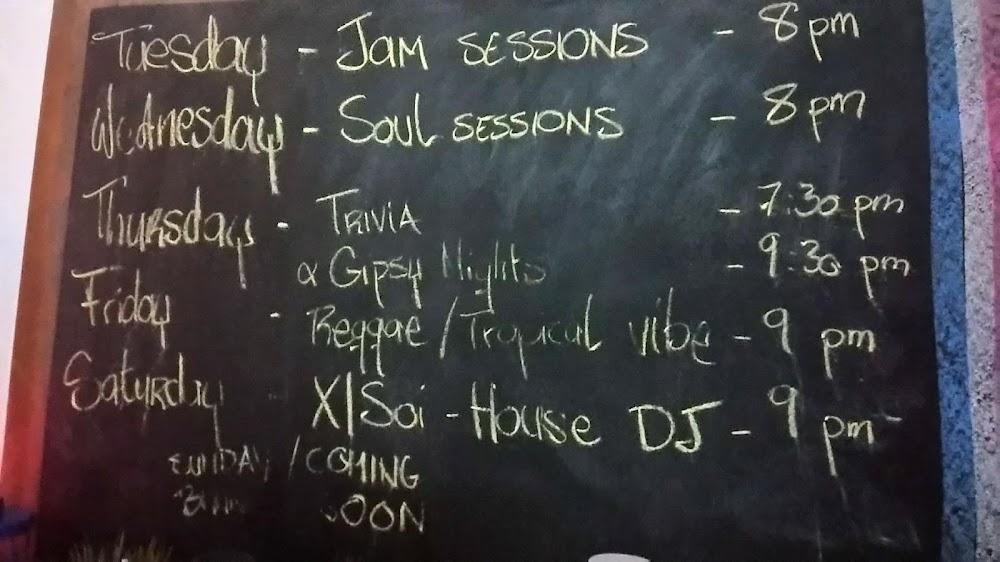 Tuesday - JAM SESSIONS - 8pm
Wednesday - Soul SESSIONS - 8pm
Thursday - TRIVIA - 7:30 pm
& Gipsy Nights - 9:30 pm
Friday - Reggae / Tropical vibe - 9 pm
Saturday - X|Soi - House DJ - 9 pm
SUNDAY / COMING
SOON